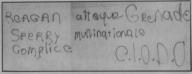 REAGAN attaque GRENADE
SPERRY multinationale
complice C.L.O.D.O